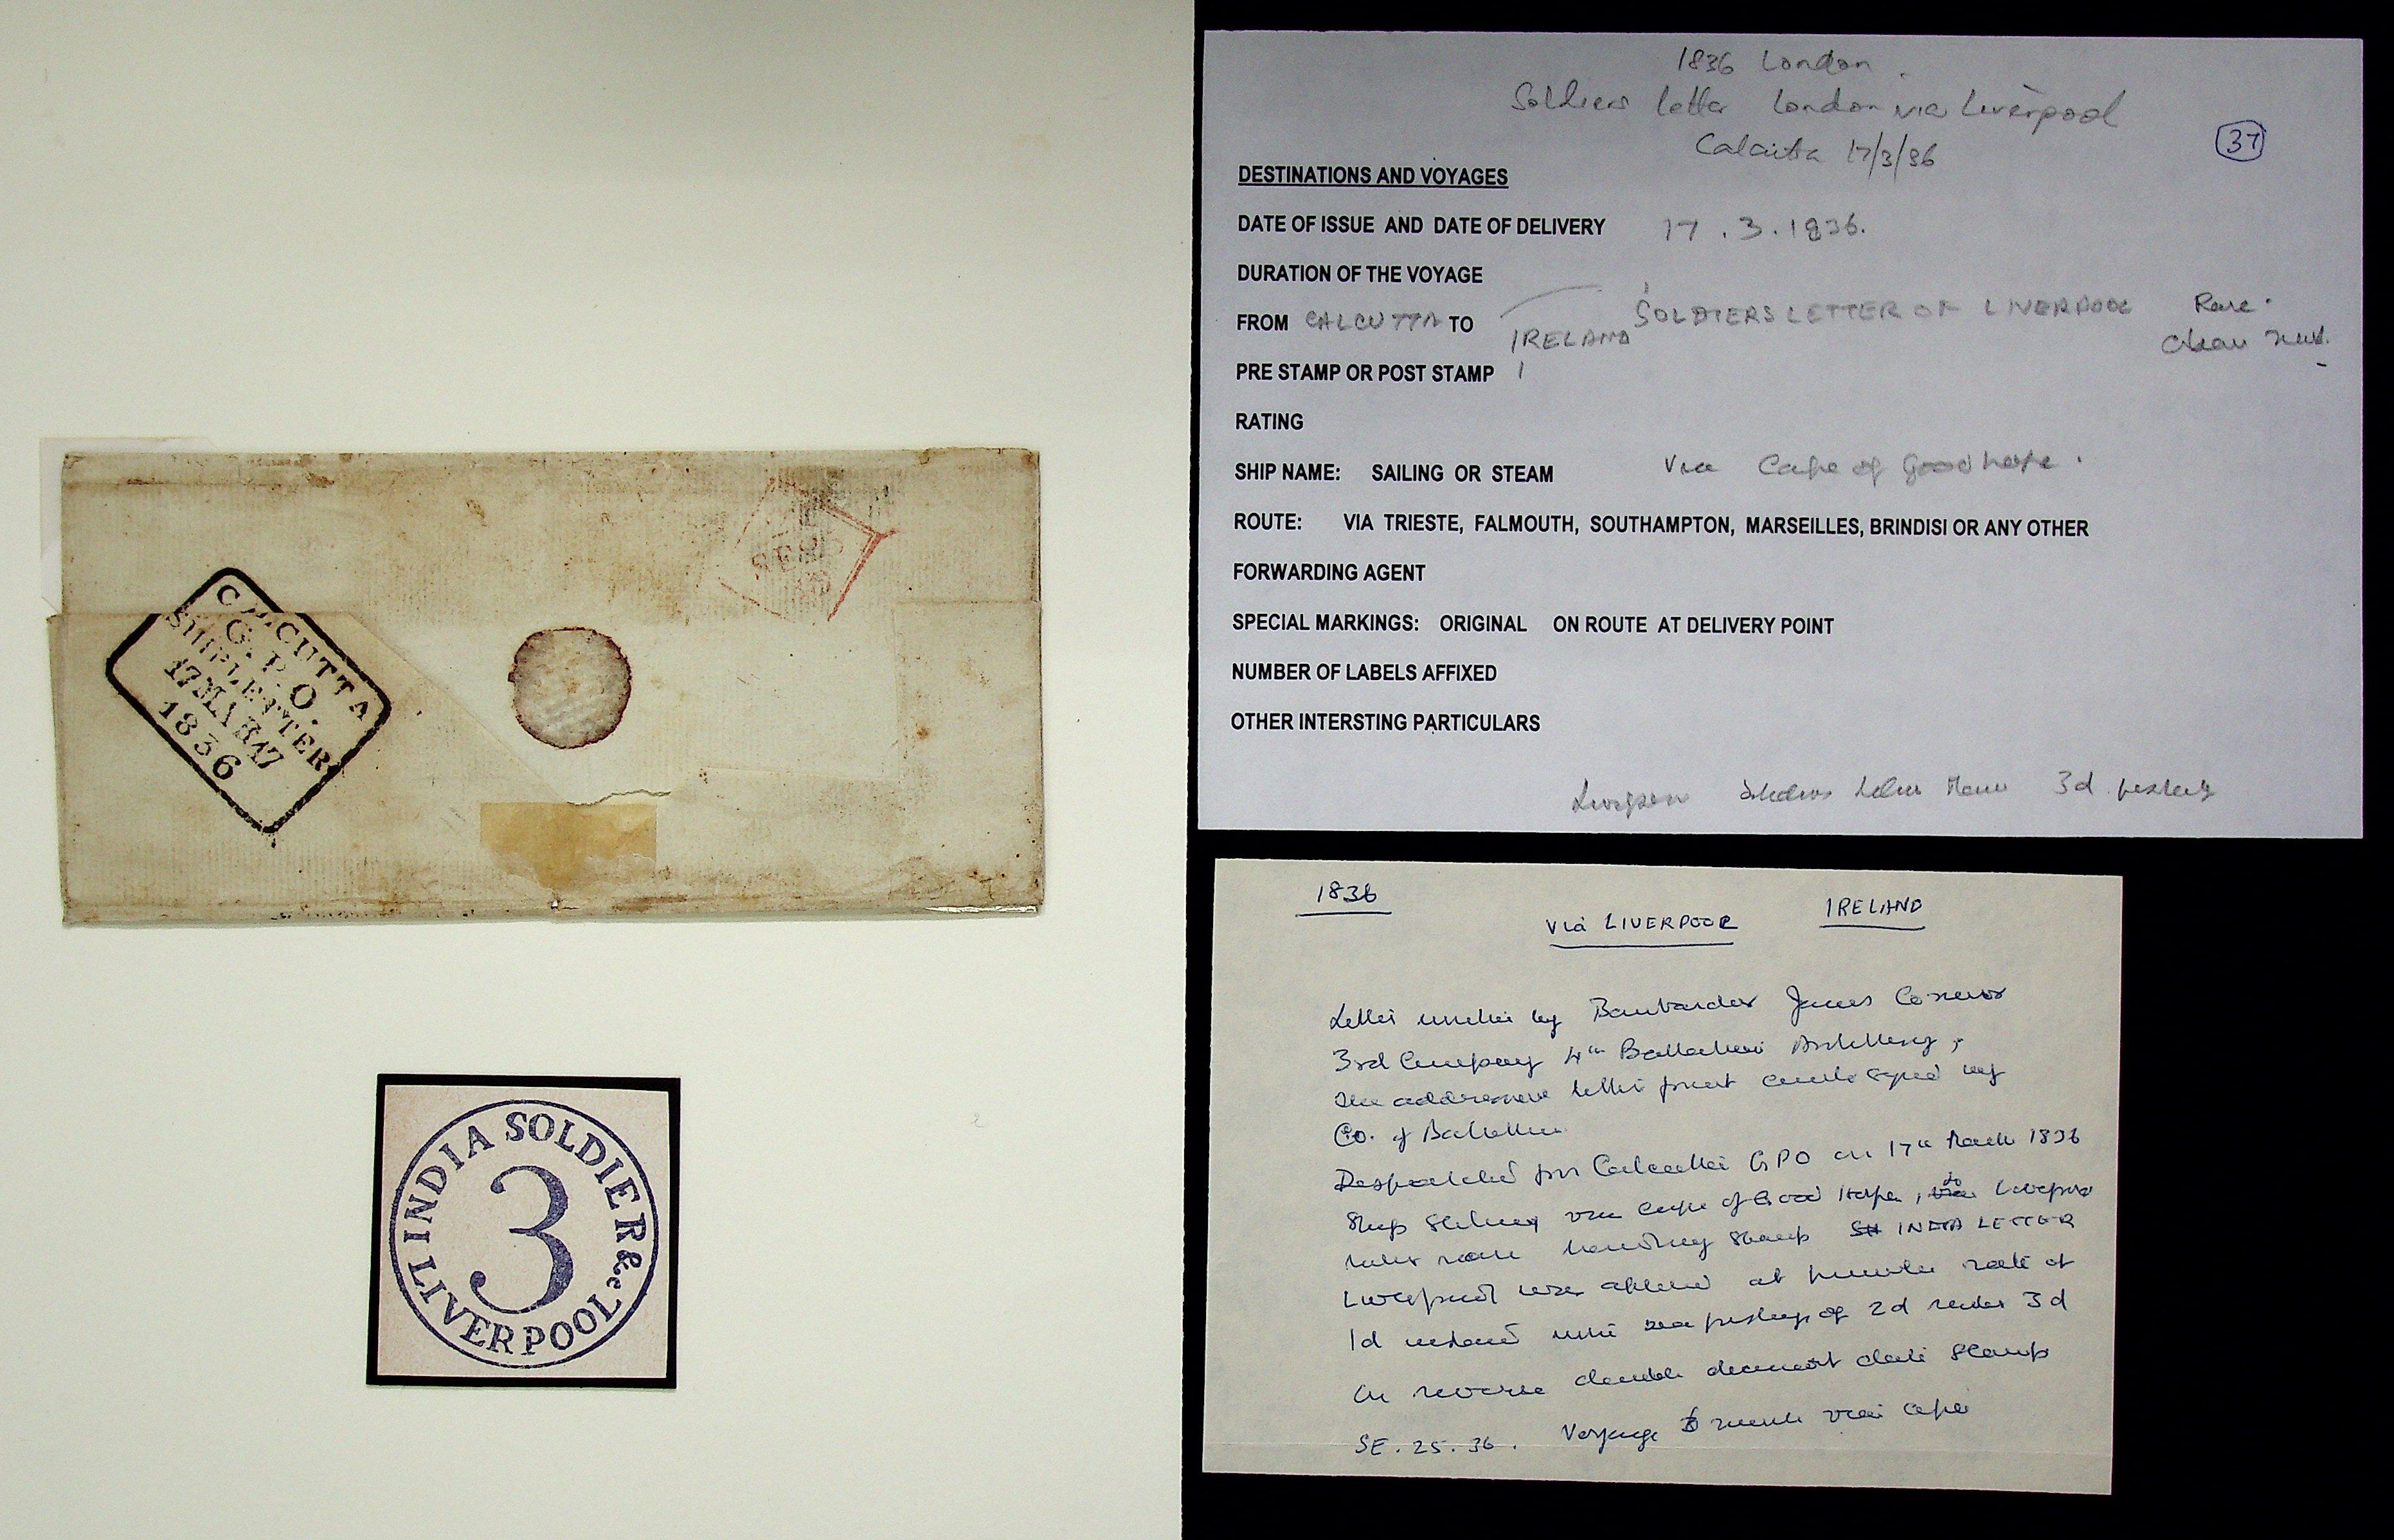 CALCUTTA
G.P.O.
SHIP LETTER
17 MAR 17
1836
SE 25
INDIA SOLDIER &c
3
LIVERPOOL
1836 London
Soldiers letter London via Liverpool
Calcutta 17/3/36
37
DESTINATIONS AND VOYAGES
DATE OF ISSUE AND DATE OF DELIVERY 17.3.1836.
DURATION OF THE VOYAGE
FROM CALCUTTA TO IRELAND SOLDIERS LETTER OF LIVERPOOL Rare.
PRE STAMP OR POST STAMP
RATING
SHIP NAME: SAILING OR STEAM Via Cape of Good hope.
ROUTE: VIA TRIESTE, FALMOUTH, SOUTHAMPTON, MARSEILLES, BRINDISI OR ANY OTHER
FORWARDING AGENT
SPECIAL MARKINGS: ORIGINAL ON ROUTE AT DELIVERY POINT
NUMBER OF LABELS AFFIXED
OTHER INTERSTING PARTICULARS
3d
1836
via LIVERPOOL IRELAND
Letter written by Bombardier James Connor
3rd Company 4th Battalion Artillery,
letter front signed by
Co. of Battalion
Despatched from Calcutta GPO on 17th March 1836
Ship via Cape of Good Hope, to Liverpool
stamp INDIA LETTER
Liverpool was applied at rate of
1d postage of 2d 3d
On reverse double date stamp
SE. 25. 36. Voyage 6 month via cape